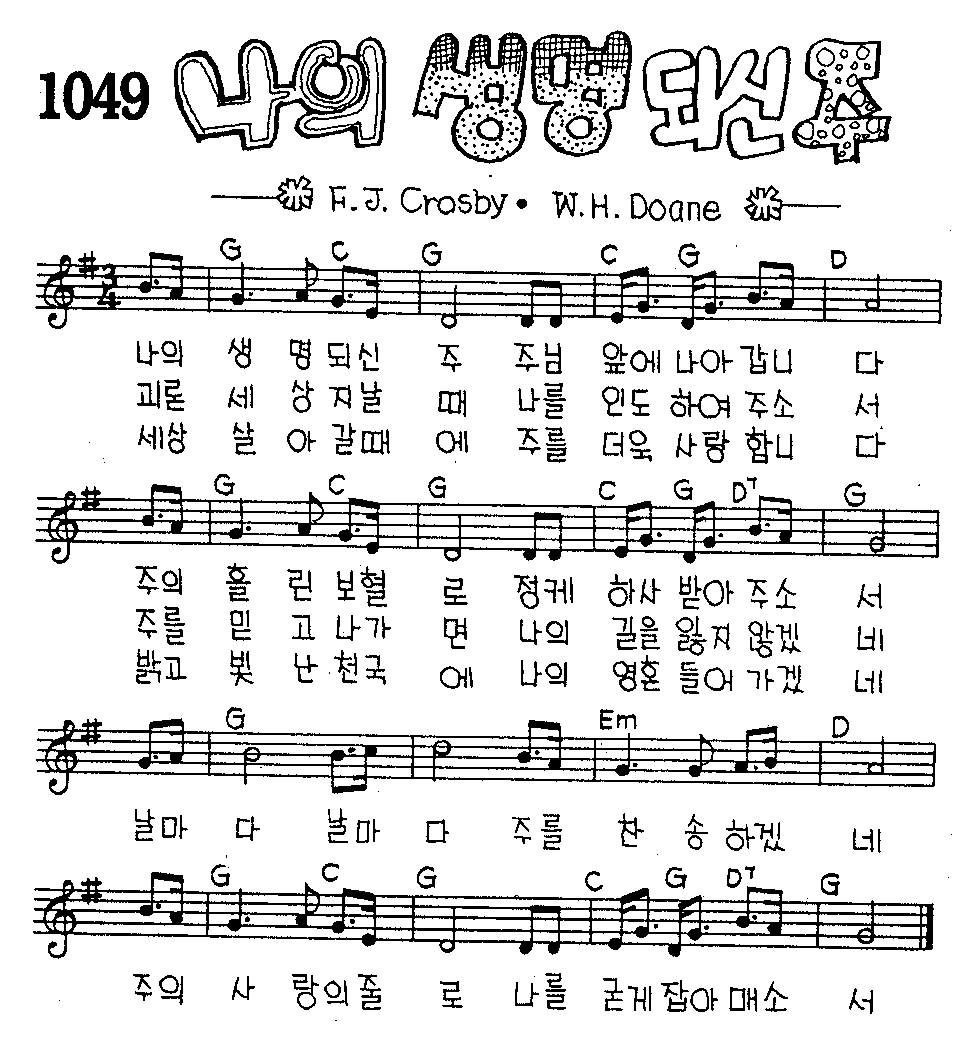 1049 나의 생명 되신 주
F.J. Crosby • W.H. Doane
3/4
G C G C G D
나의 생 명 되신 주 주님 앞에 나아 갑니 다
괴론 세 상 지날 때 나를 인도 하여 주소 서
세상 살 아 갈때 에 주를 더욱 사랑 합니 다
G C G C G D7 G
주의 흘 린 보혈 로 정케 하사 받아 주소 서
주를 믿 고 나가 면 나의 길을 잃지 않겠 네
밝고 빛 난 천국 에 나의 영혼 들어 가겠 네
G Em D
날마 다 날마 다 주를 찬 송 하겠 네
G C G C G D7 G
주의 사 랑의 줄 로 나를 굳게 잡아 매소 서